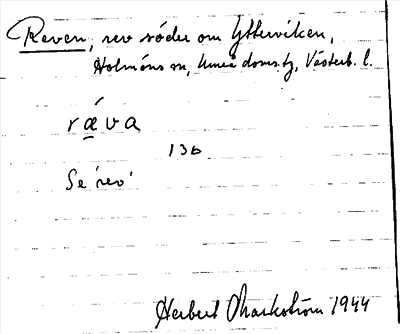 Reven, rev söder om Ytterviken,
Holmöns sn, Umeå doms.tg, Västerb. l.
rǽva
13b
Se 'rev'
Herbert Markström 1944